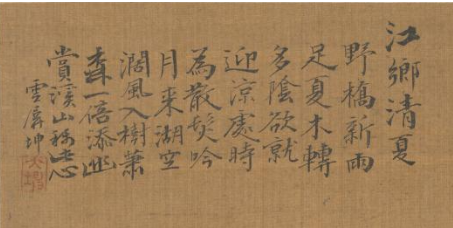 江鄉清夏
野橋新雨
足夏木轉
多陰欲就
迎涼處時
為散髮吟
月來湖空
濶風入樹蕭
森一倍添幽
賞溪山稱此心
雪屏坤